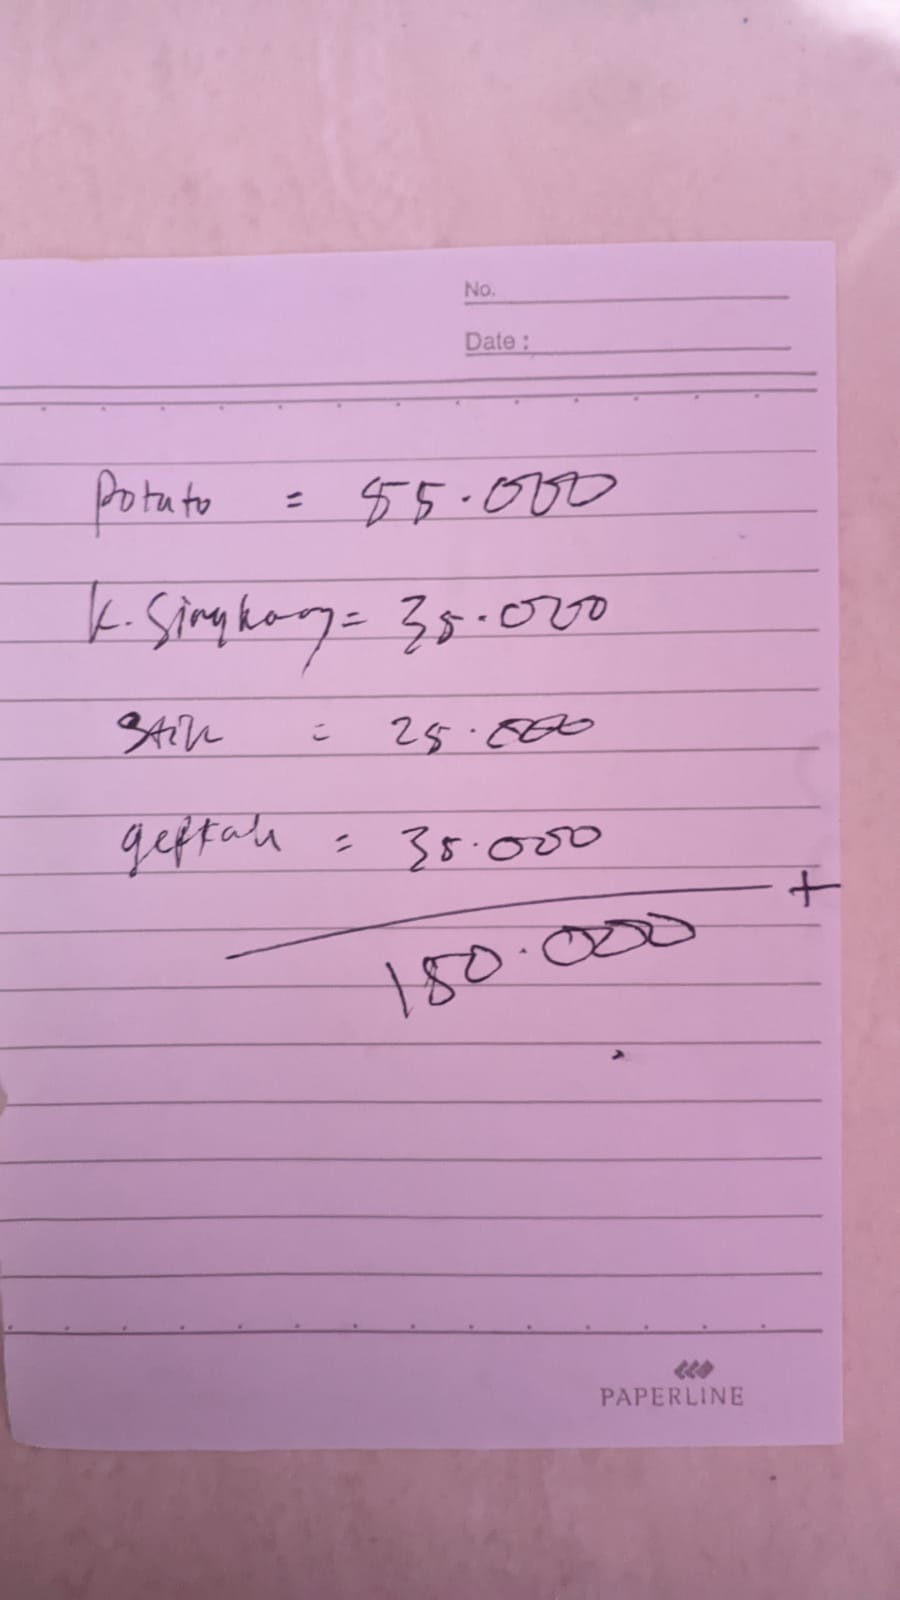 No.
Date :
Potato = 55.000
K. Singkong = 35.000
Stik = 25.000
gepak = 35.000
+
150.000
PAPERLINE